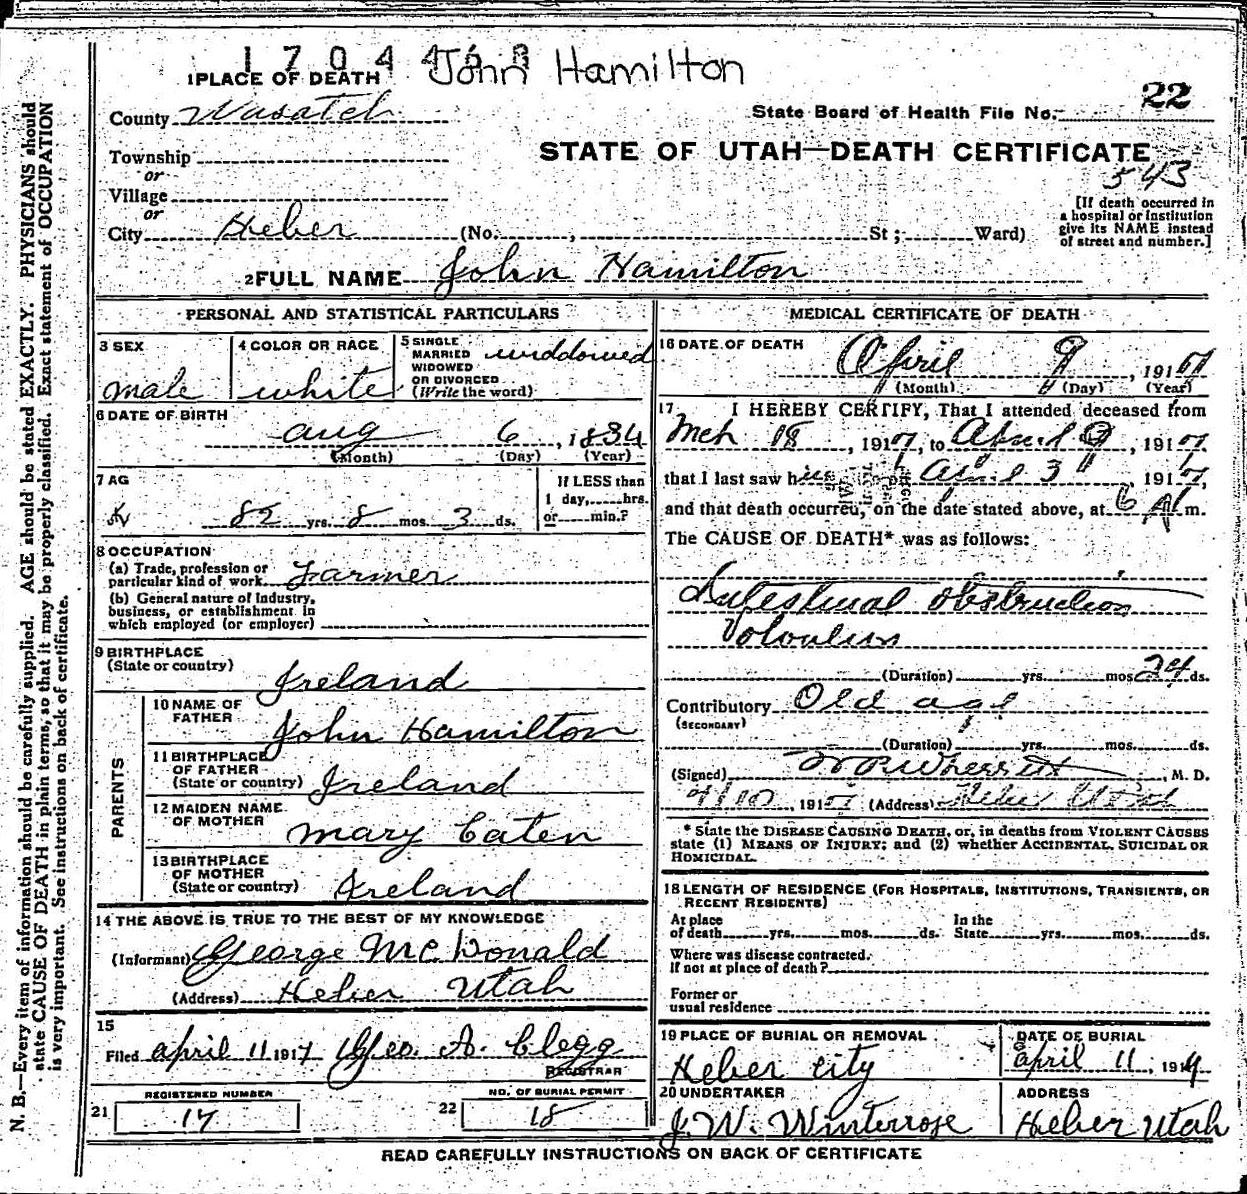 1 7 0 4 4 John Hamilton
1 PLACE OF DEATH
22
County Wasatch
State Board of Health File No.
Township
or
STATE OF UTAH—DEATH CERTIFICATE
543
Village
or
[If death occurred in
a hospital or institution
give its NAME instead
of street and number.]
City Heber (No. , St ; Ward)
2 FULL NAME John Hamilton
PERSONAL AND STATISTICAL PARTICULARS
3 SEX
male
4 COLOR OR RACE
white
5 SINGLE
MARRIED
WIDOWED
OR DIVORCED
(Write the word)
widdowed
6 DATE OF BIRTH
aug 6, 1834
(Month) (Day) (Year)
7 AG
82 yrs. 8 mos. 3 ds.
If LESS than
1 day, hrs.
or min.?
8 OCCUPATION
(a) Trade, profession or
particular kind of work. Farmer
(b) General nature of Industry,
business, or establishment in
which employed (or employer)
9 BIRTHPLACE
(State or country) Ireland
PARENTS
10 NAME OF
FATHER John Hamilton
11 BIRTHPLACE
OF FATHER
(State or country) Ireland
12 MAIDEN NAME
OF MOTHER Mary Caten
13 BIRTHPLACE
OF MOTHER
(State or country) Ireland
14 THE ABOVE IS TRUE TO THE BEST OF MY KNOWLEDGE
(Informant) George McDonald
(Address) Heber Utah
15
Filed april 11 1917 Geo. A. Clegg
REGISTRAR
REGISTERED NUMBER
21 17
NO. OF BURIAL PERMIT
22 18
MEDICAL CERTIFICATE OF DEATH
16 DATE OF DEATH
April 9, 1917
(Month) (Day) (Year)
17 I HEREBY CERTIFY, That I attended deceased from
Mch 18, 1917, to April 9, 1917,
that I last saw him April 3, 1917,
and that death occurred, on the date stated above, at 6 A m.
The CAUSE OF DEATH* was as follows:
Intestinal obstruction
Volvulus
(Duration) yrs. mos. 24 ds.
Contributory Old age
(SECONDARY)
(Duration) yrs. mos. ds.
(Signed) W R Wherritt, M. D.
4/10, 1917 (Address) Heber Utah
* State the DISEASE CAUSING DEATH, or, in deaths from VIOLENT CAUSES
state (1) MEANS OF INJURY; and (2) whether ACCIDENTAL, SUICIDAL OR
HOMICIDAL.
18 LENGTH OF RESIDENCE (FOR HOSPITALS, INSTITUTIONS, TRANSIENTS, OR
RECENT RESIDENTS)
At place
of death yrs. mos. ds.
In the
State yrs. mos. ds.
Where was disease contracted.
If not at place of death?
Former or
usual residence
19 PLACE OF BURIAL OR REMOVAL
Heber city
DATE OF BURIAL
april 11, 191
20 UNDERTAKER
J. W. Winterrose
ADDRESS
Heber Utah
READ CAREFULLY INSTRUCTIONS ON BACK OF CERTIFICATE
N. B.—Every item of information should be carefully supplied. AGE should be stated EXACTLY. PHYSICIANS should
state CAUSE OF DEATH in plain terms, so that it may be properly classified. Exact statement of OCCUPATION
is very important. See instructions on back of certificate.